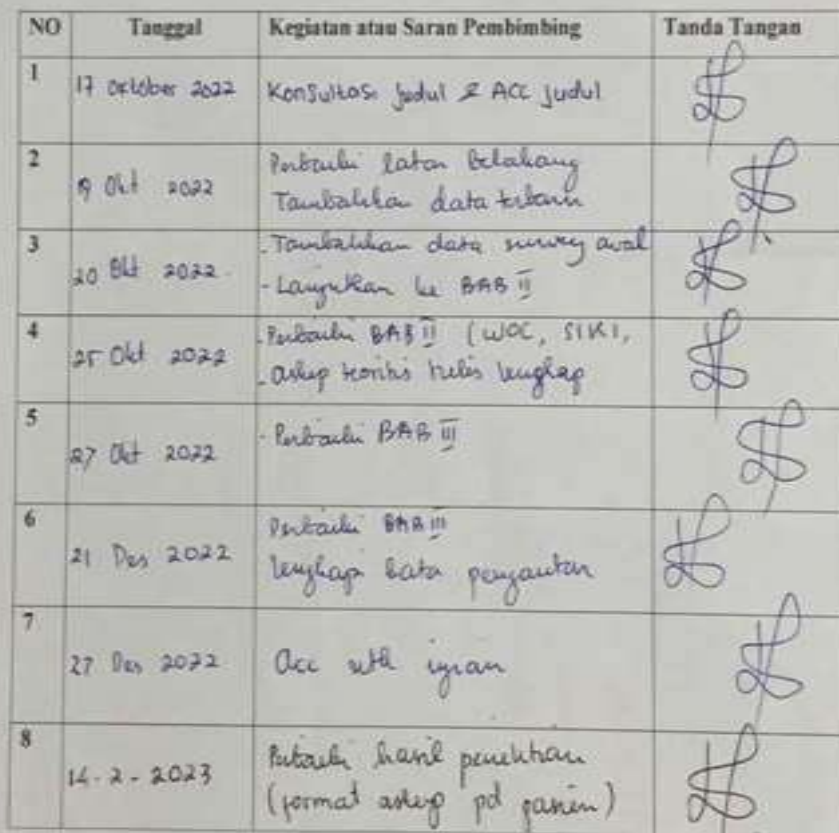 NO Tanggal Kegiatan atau Saran Pembimbing Tanda Tangan
1 17 Oktober 2022 Konsultasi judul & ACC judul
2 19 Okt 2022 Perbaiki latar belakang
Tambahkan data terbaru
3 20 Okt 2022 - Tambahkan data survey awal
- Lanjutkan ke BAB II
4 25 Okt 2022 - Perbaiki BAB II (WOC, SIKI,
- askep teoritis tulis lengkap
5 27 Okt 2022 - Perbaiki BAB III
6 21 Des 2022 Perbaiki BAB III
lengkapi kata pengantar
7 27 Des 2022 Acc utk ujian
8 14-2-2023 Perbaiki hasil penelitian
(format askep pd pasien)